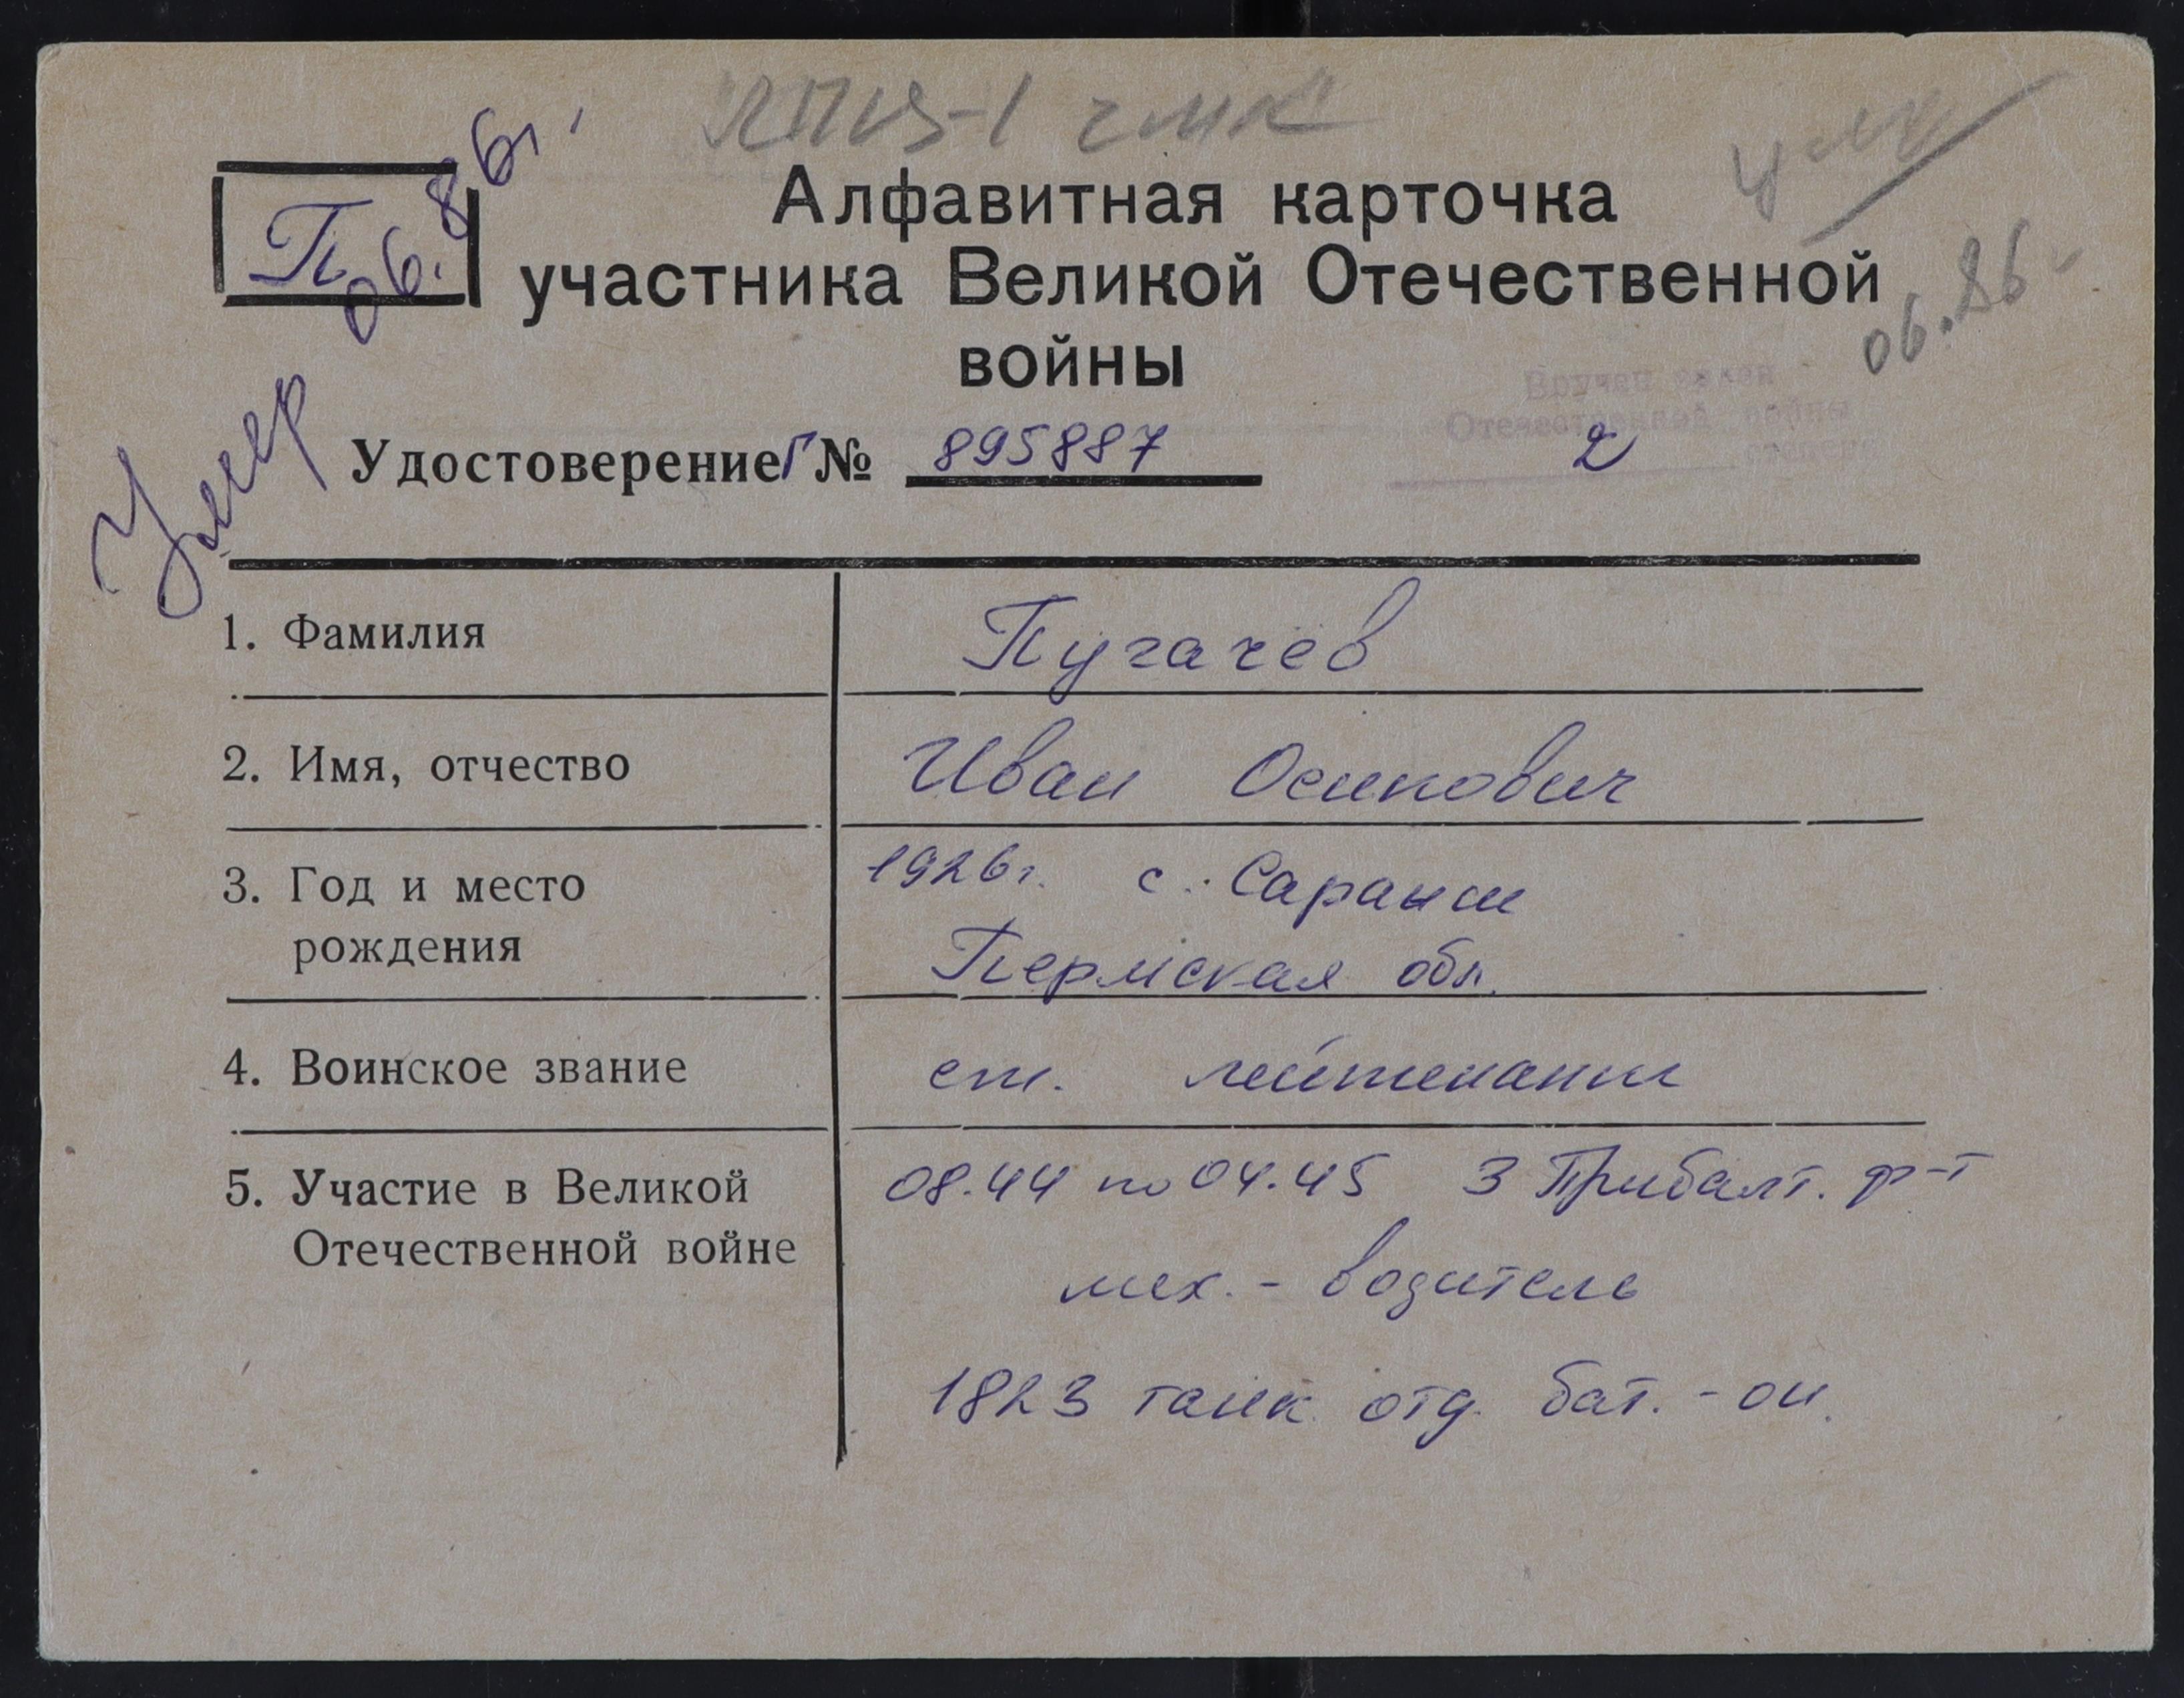 Умер 06.86г.
П
Алфавитная карточка
участника Великой Отечественной
войны
06.86
Удостоверение Г № 895887
Вручен орден
Отечественной войны
2 степени
1. Фамилия
Пугачёв
2. Имя, отчество
Иван Осипович
3. Год и место
рождения
1926г. с. Сараши
Пермская обл.
4. Воинское звание
ст. лейтенант
5. Участие в Великой
Отечественной войне
08.44 по 04.45 3 Прибалт. ф-т
мех.- водитель
1823 танк. отд. бат.-он.